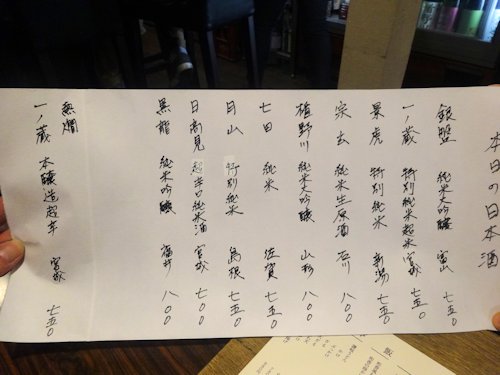 本日の日本酒
銀盤 純米大吟醸 富山 七五〇
一ノ蔵 特別純米超辛 宮城 七五〇
景虎 特別純米 新潟 七五〇
宗玄 純米生原酒 石川 八〇〇
楯野川 純米大吟醸 山形 八〇〇
七田 純米 佐賀 七五〇
月山 特別純米 島根 七五〇
日高見 超辛口純米酒 宮城 七〇〇
黒龍 純米吟醸 福井 八〇〇
熱燗
一ノ蔵 本醸造超辛 宮城 七五〇